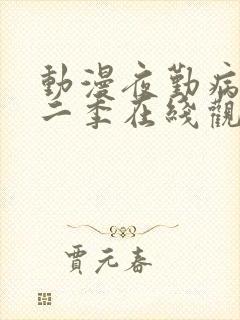 動漫夜勤病
二季在綫觀
賈元春